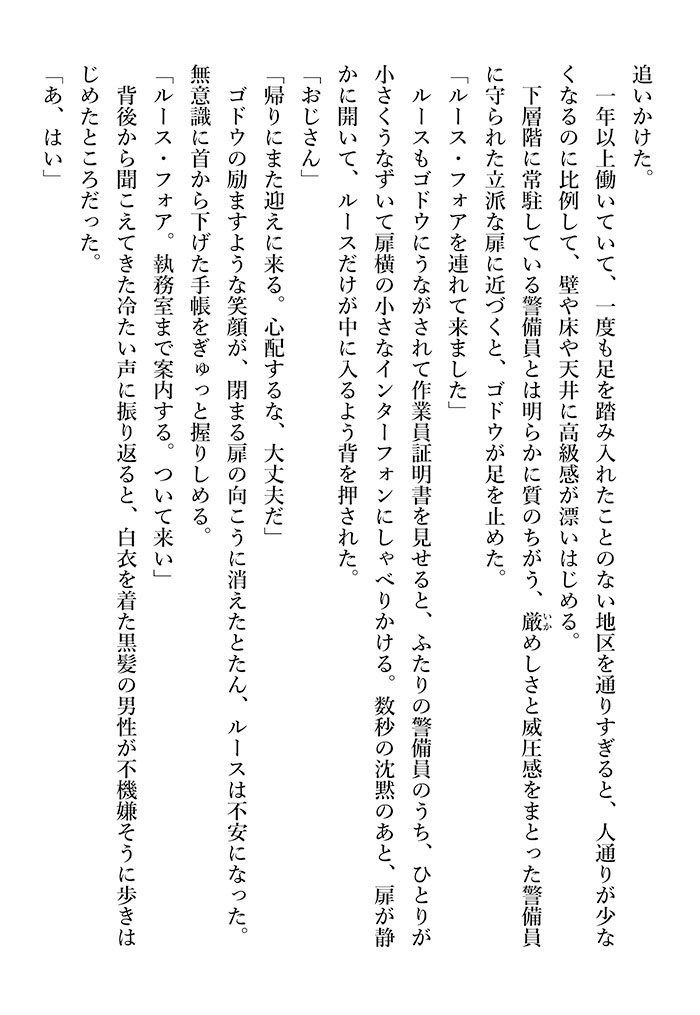 追いかけた。
　一年以上働いていて、一度も足を踏み入れたことのない地区を通りすぎると、人通りが少な
くなるのに比例して、壁や床や天井に高級感が漂いはじめる。
　下層階に常駐している警備員とは明らかに質のちがう、厳いかめしさと威圧感をまとった警備員
に守られた立派な扉に近づくと、ゴドウが足を止めた。
「ルース・フォアを連れて来ました」
　ルースもゴドウにうながされて作業員証明書を見せると、ふたりの警備員のうち、ひとりが
小さくうなずいて扉横の小さなインターフォンにしゃべりかける。数秒の沈黙のあと、扉が静
かに開いて、ルースだけが中に入るよう背を押された。
「おじさん」
「帰りにまた迎えに来る。心配するな、大丈夫だ」
　ゴドウの励ますような笑顔が、閉まる扉の向こうに消えたとたん、ルースは不安になった。
無意識に首から下げた手帳をぎゅっと握りしめる。
「ルース・フォア。執務室まで案内する。ついて来い」
　背後から聞こえてきた冷たい声に振り返ると、白衣を着た黒髪の男性が不機嫌そうに歩きは
じめたところだった。
「あ、はい」